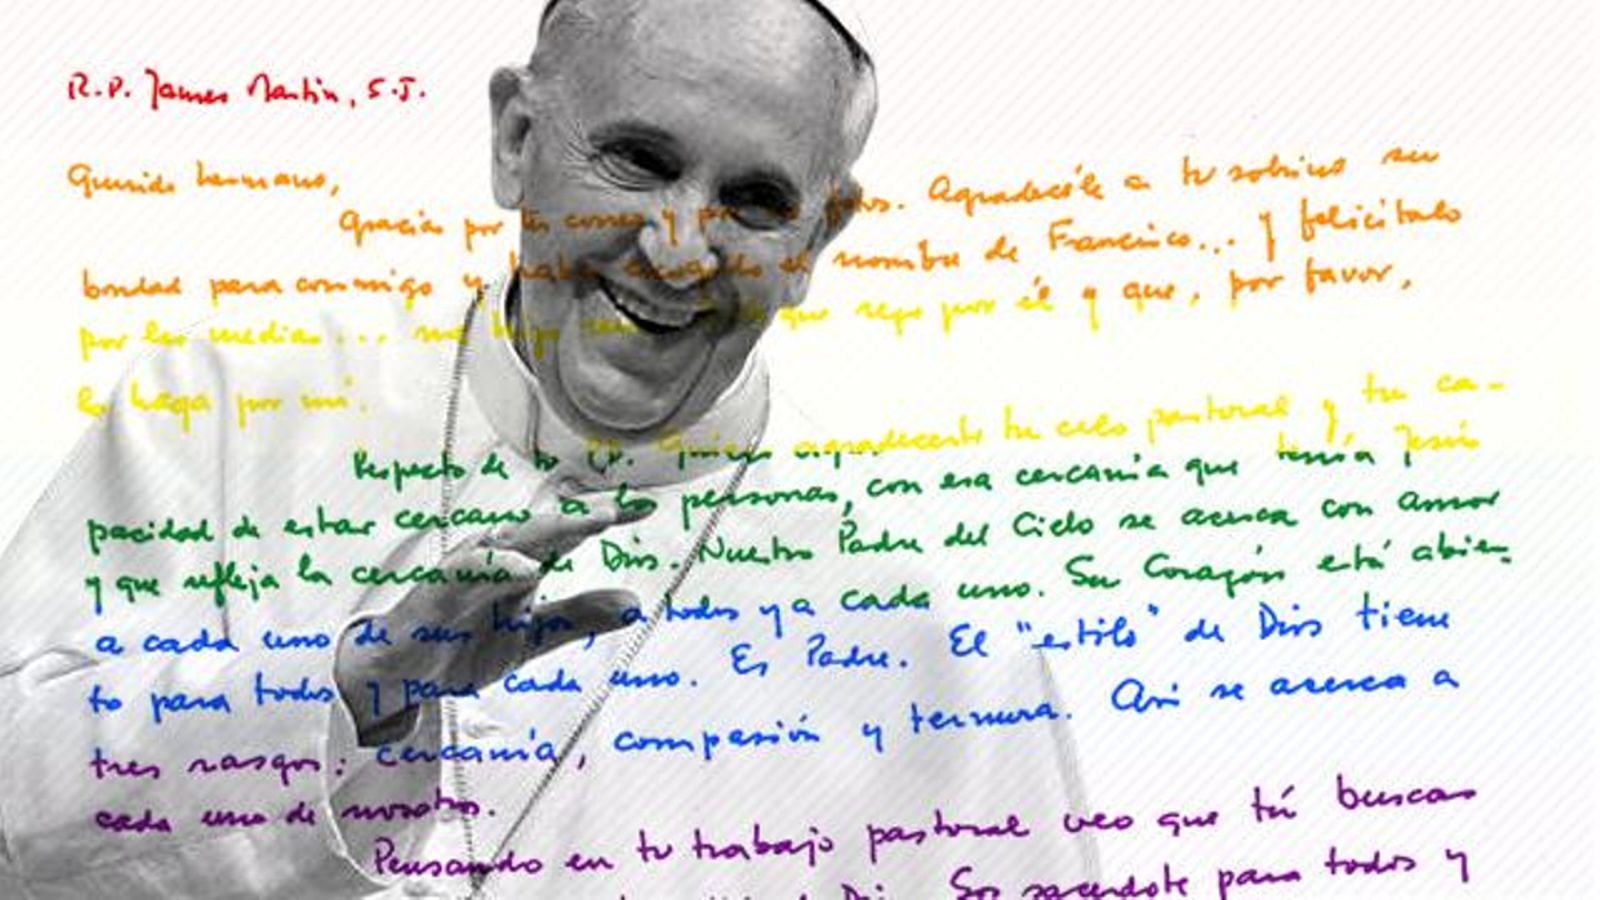 R.P. James Martin, S.J.
Querido hermano,
Gracias por tu correo y por fotos. Agradecéle a tu sobrino su
bondad para conmigo y haber el nombre de Francisco... y felicitalo
por las medias... me hizo que rezo por él y que, por favor,
lo haga por mí.
Respecto de tu P.D. quiero agradecerte tu celo pastoral y tu ca-
pacidad de estar cercano a las personas, con esa cercanía que tenía Jesús
y que refleja la cercanía de Dios. Nuestro Padre del Cielo se acerca con amor
a cada uno de sus hijos, a todos y a cada uno. Su Corazón está abier-
to para todos y para cada uno. Es Padre. El "estilo" de Dios tiene
tres rasgos: cercanía, compasión y ternura. Así se acerca a
cada uno de nosotros.
Pensando en tu trabajo pastoral veo que tú buscas
Dios. Sos sacerdote para todos y